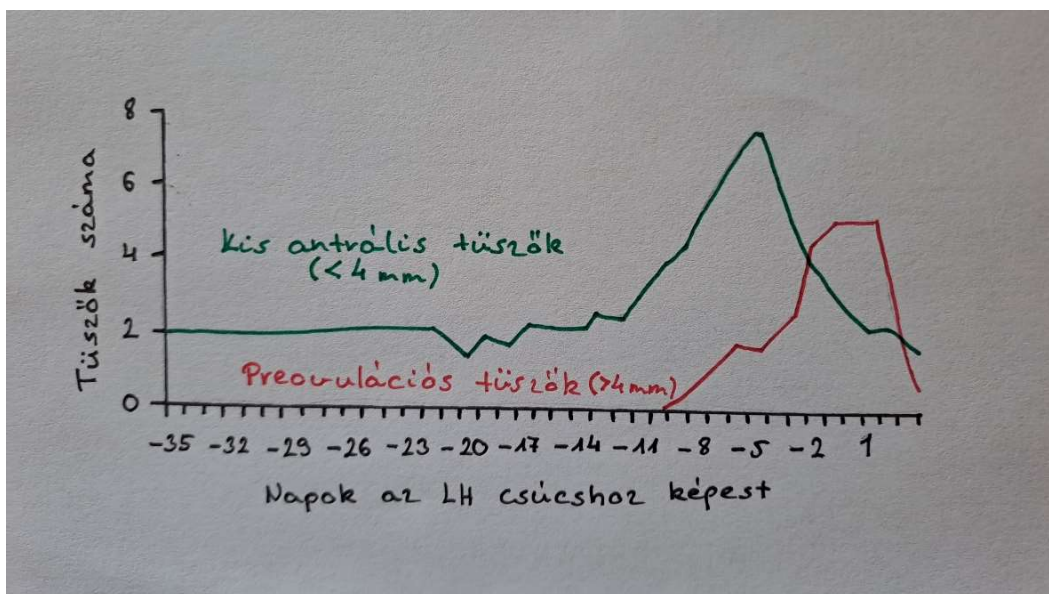 8
6
4
2
0
Tüszők száma
Kis antrális tüszők
(<4 mm)
Preovulációs tüszők (>4mm)
-35 -32 -29 -26 -23 -20 -17 -14 -11 -8 -5 -2 1
Napok az LH csúcshoz képest